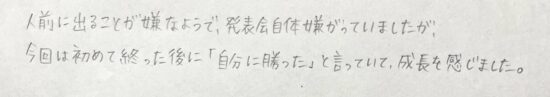 人前に出ることが嫌なようで、発表会自体嫌がっていましたが、
今回は初めて終った後に「自分に勝った」と言っていて、成長を感じました。